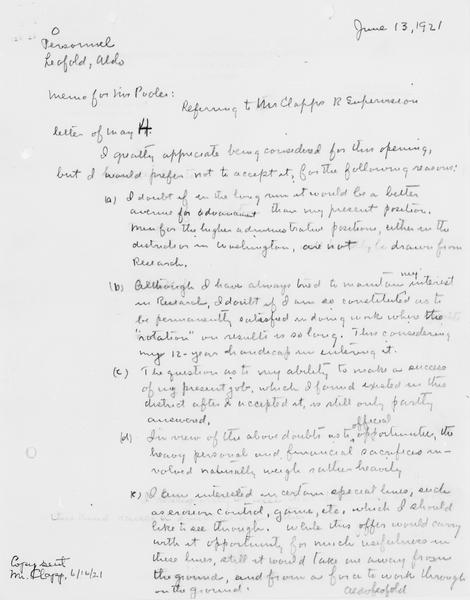 O
June 13, 1921
Personnel
Leopold, Aldo
Memo for Mr Pooler:
Referring to Mr Clapp's R Supervision
letter of May 4.
I greatly appreciate being considered for this opening,
but I would prefer not to accept it, for the following reasons:
(a) I doubt if in the long run it would be a better
avenue for advancement than my present position.
Men for the higher administrative positions, either in the
districts or in Washington, are not drawn from
Research.
(b) Although I have always tried to maintain my interest
in Research, I doubt if I am so constituted as to
be permanently satisfied in doing work where the
"rotation" on results is so long. This considering
my 12-year handicap in entering it.
(c) The question as to my ability to make a success
of my present job, which I found existed in this
district after I accepted it, is still only partly
answered.
(d) In view of the above doubts as to official opportunities, the
heavy personal and financial sacrifices in-
volved naturally weigh rather heavily
I am interested in certain special lines, such
as erosion control, game, etc, which I should
like to see through. While this offer would carry
with it opportunity for much usefulness in
these lines, still it would take me away from
the ground, and from a force to work through
on the ground.
Aldo Leopold
Copy sent
Mr. Clapp, 6/16/21